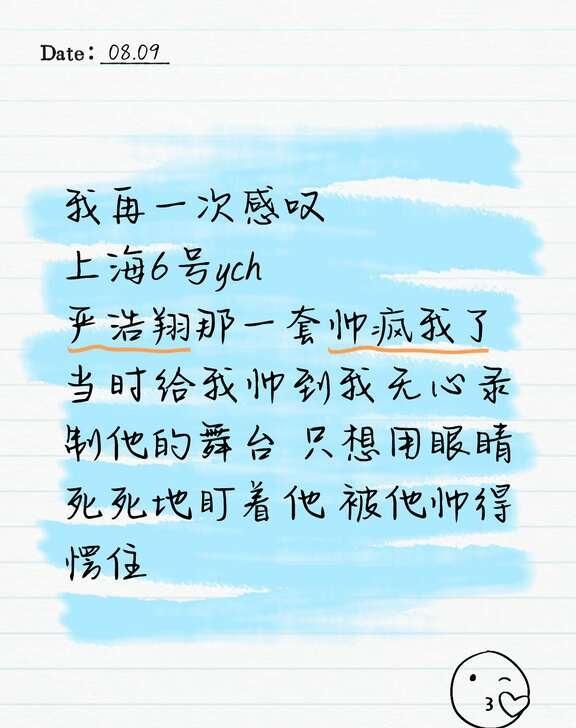 Date: 08.09
我再一次感叹
上海6号ych
严浩翔那一套帅疯我了
当时给我帅到我无心录
制他的舞台 只想用眼睛
死死地盯着他 被他帅得
愣住